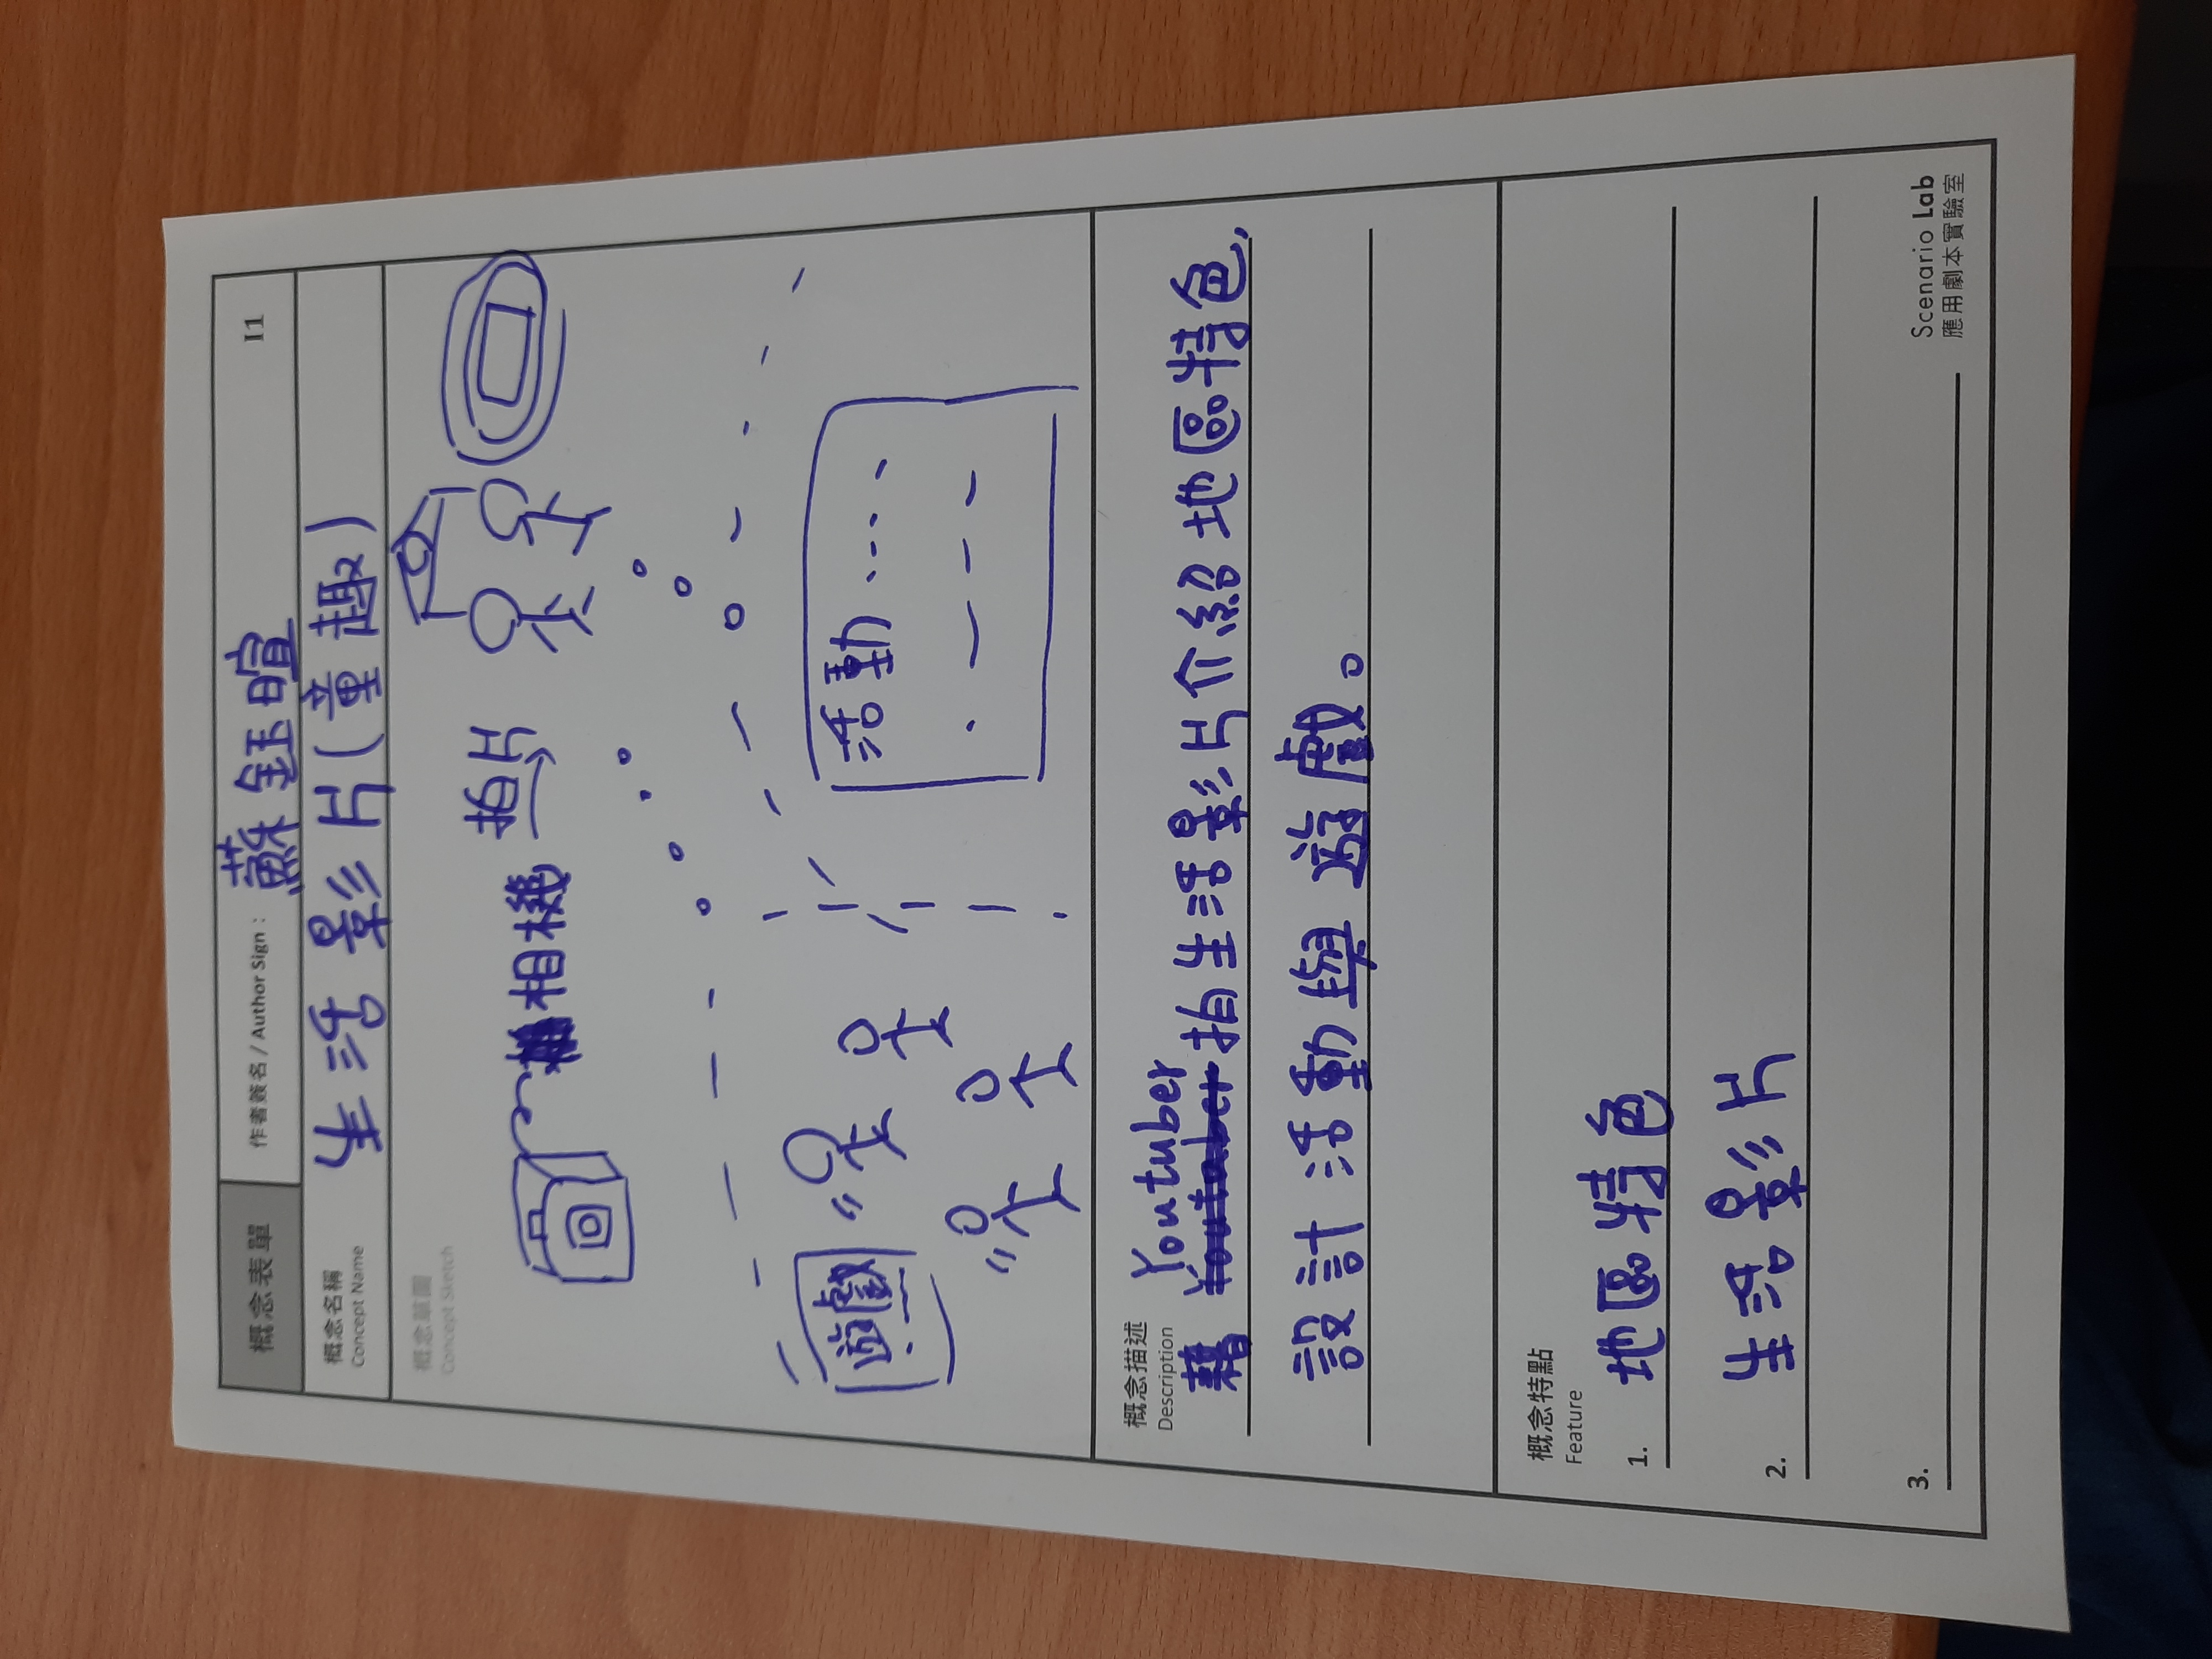 概念表單
作者簽名 / Author Sign： 蘇鈺暄
I1
概念名稱
Concept Name
生活影片(童趣)
概念草圖
Concept Sketch
相機
拍片
遊戲
活動....
概念描述
Description
Youtuber
藉 拍生活影片介紹地區特色,
設計活動與遊戲。
概念特點
Feature
1. 地區特色
2. 生活影片
3.
Scenario Lab
應用劇本實驗室